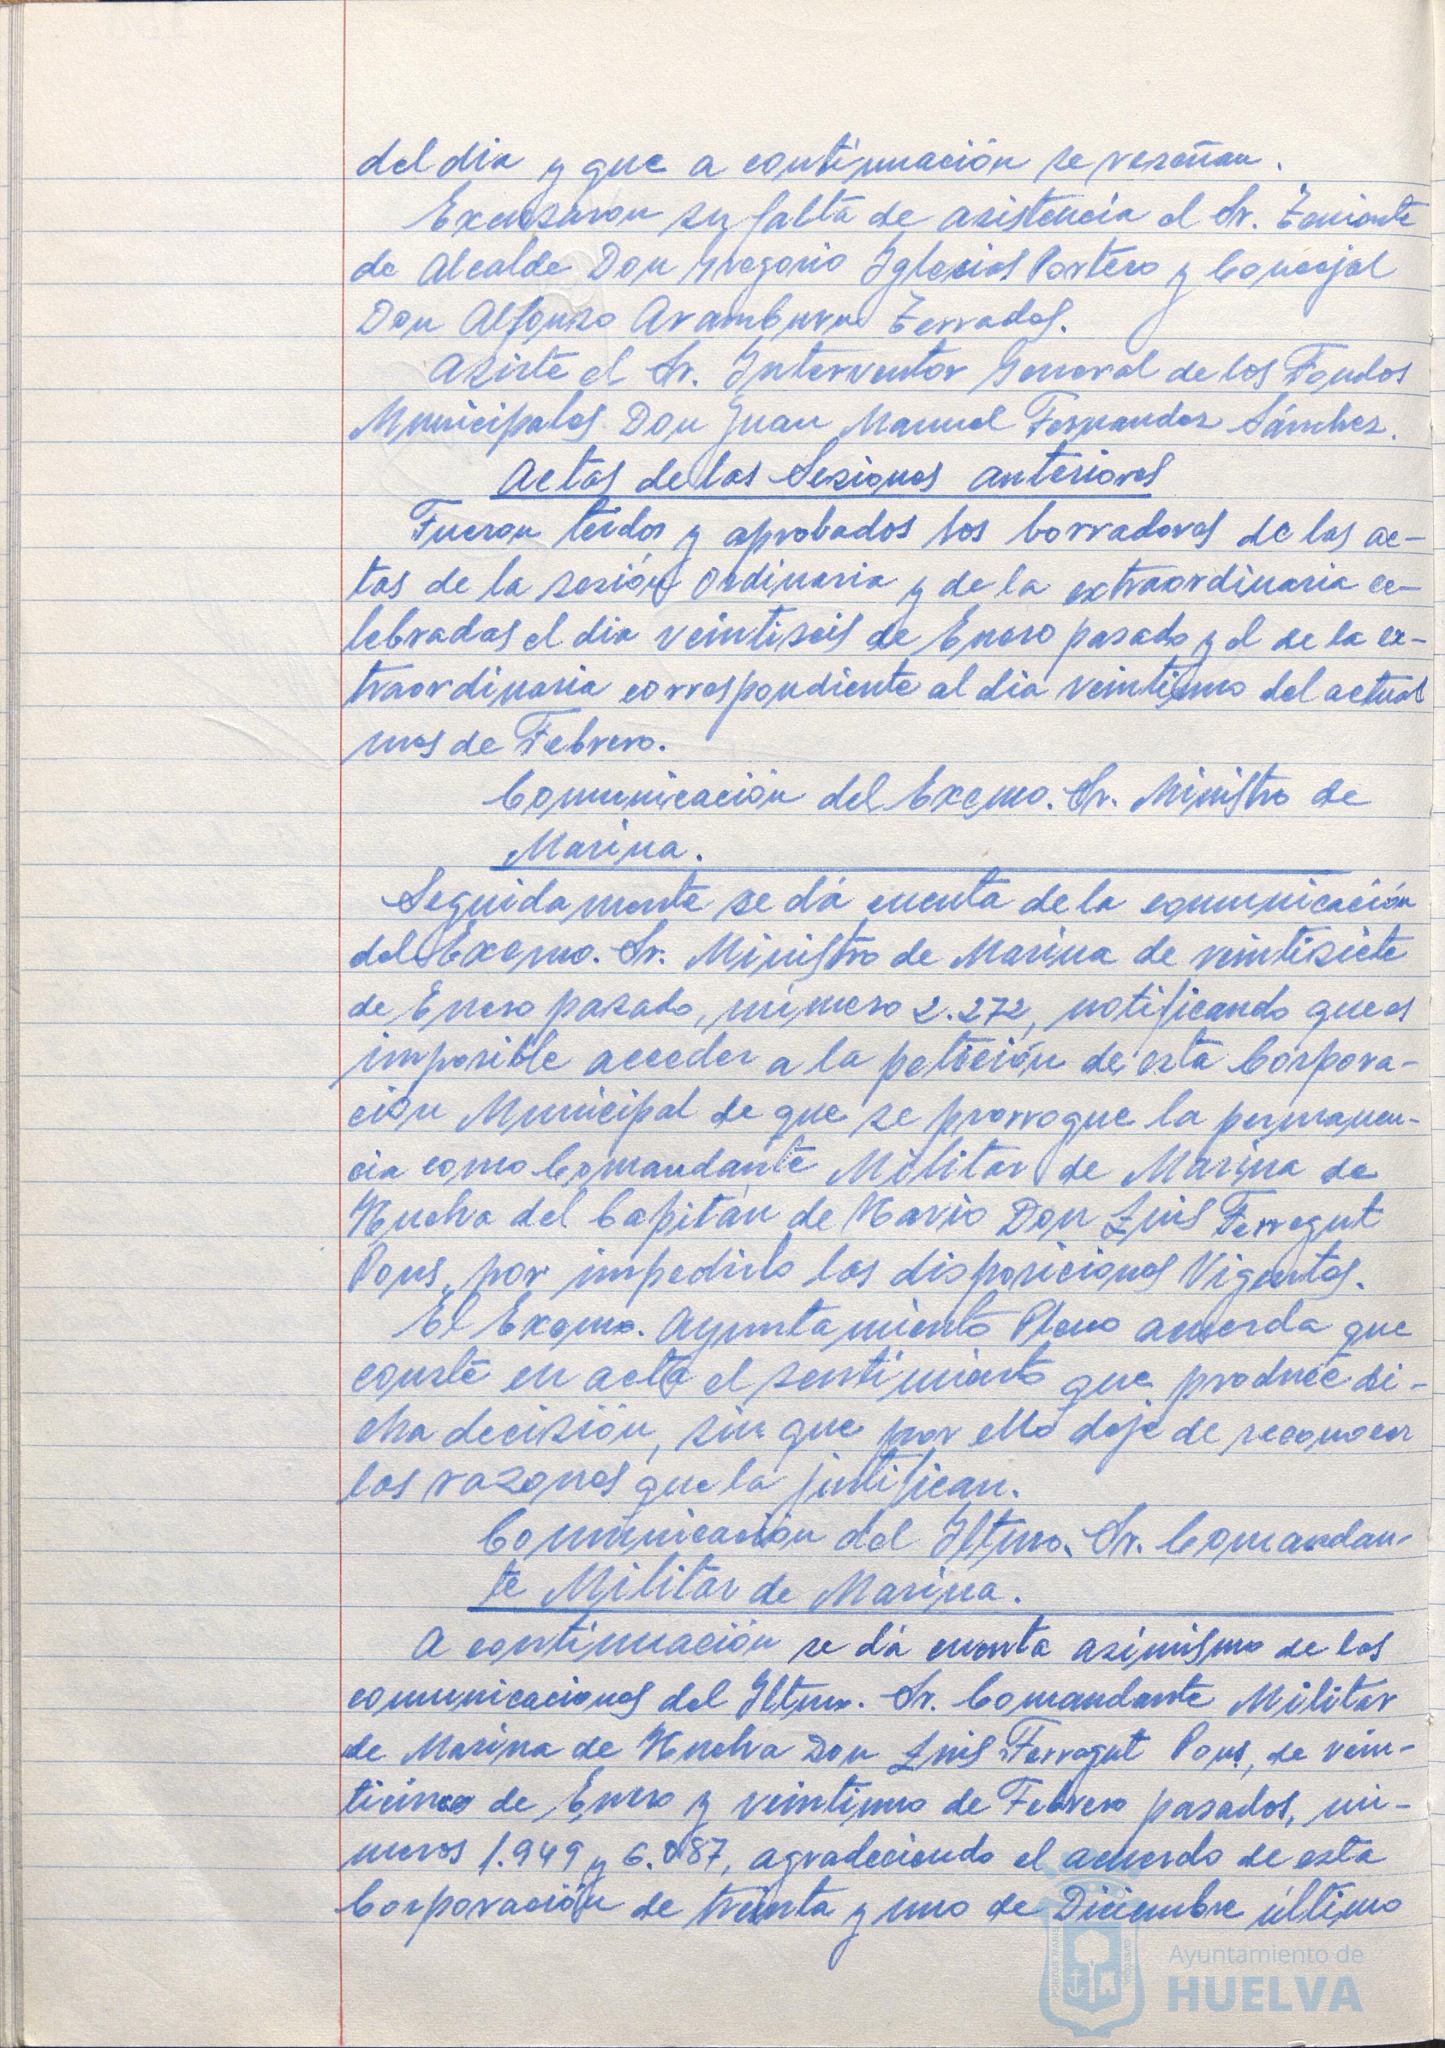 del dia y que a continuación se reseñan.
Excusaron su falta de asistencia el Sr. Teniente
de Alcalde Don Gregorio Iglesias Portero y Concejal
Don Alfonso Aramburu Terrados.
Asiste el Sr. Interventor General de los Fondos
Municipales Don Juan Manuel Fernandez Sánchez.
Actas de las Sesiones anteriores
Fueron leidos y aprobados los borradores de las ac-
tas de la sesión Ordinaria y de la extraordinaria ce-
lebradas el dia veintiseis de Enero pasado y el de la ex-
traordinaria correspondiente al dia veintiuno del actual
mes de Febrero.
Comunicación del Excmo. Sr. Ministro de
Marina.
Seguidamente se dá cuenta de la comunicación
del Excmo. Sr. Ministro de Marina de veintisiete
de Enero pasado, número 2.272, notificando que es
imposible acceder a la petición de esta Corpora-
ción Municipal de que se prorrogue la permanen-
cia como Comandante Militar de Marina de
Huelva del Capitán de Navio Don Luis Ferragut
Pons, por impedirlo las disposiciones Vigentes.
El Excmo. Ayuntamiento Pleno acuerda que
conste en acta el sentimiento que produce di-
cha decisión, sin que por ello deje de reconocer
las razones que la justifican.
Comunicación del Iltmo. Sr. Comandan-
te Militar de Marina.
A continuación se dá cuenta asimismo de las
comunicaciones del Iltmo. Sr. Comandante Militar
de Marina de Huelva Don Luis Ferragut Pons, de vein-
ticinco de Enero y veintiuno de Febrero pasados, nú-
meros 1.949 y 6.087, agradeciendo el acuerdo de esta
Corporación de treinta y uno de Diciembre último
Ayuntamiento de
HUELVA